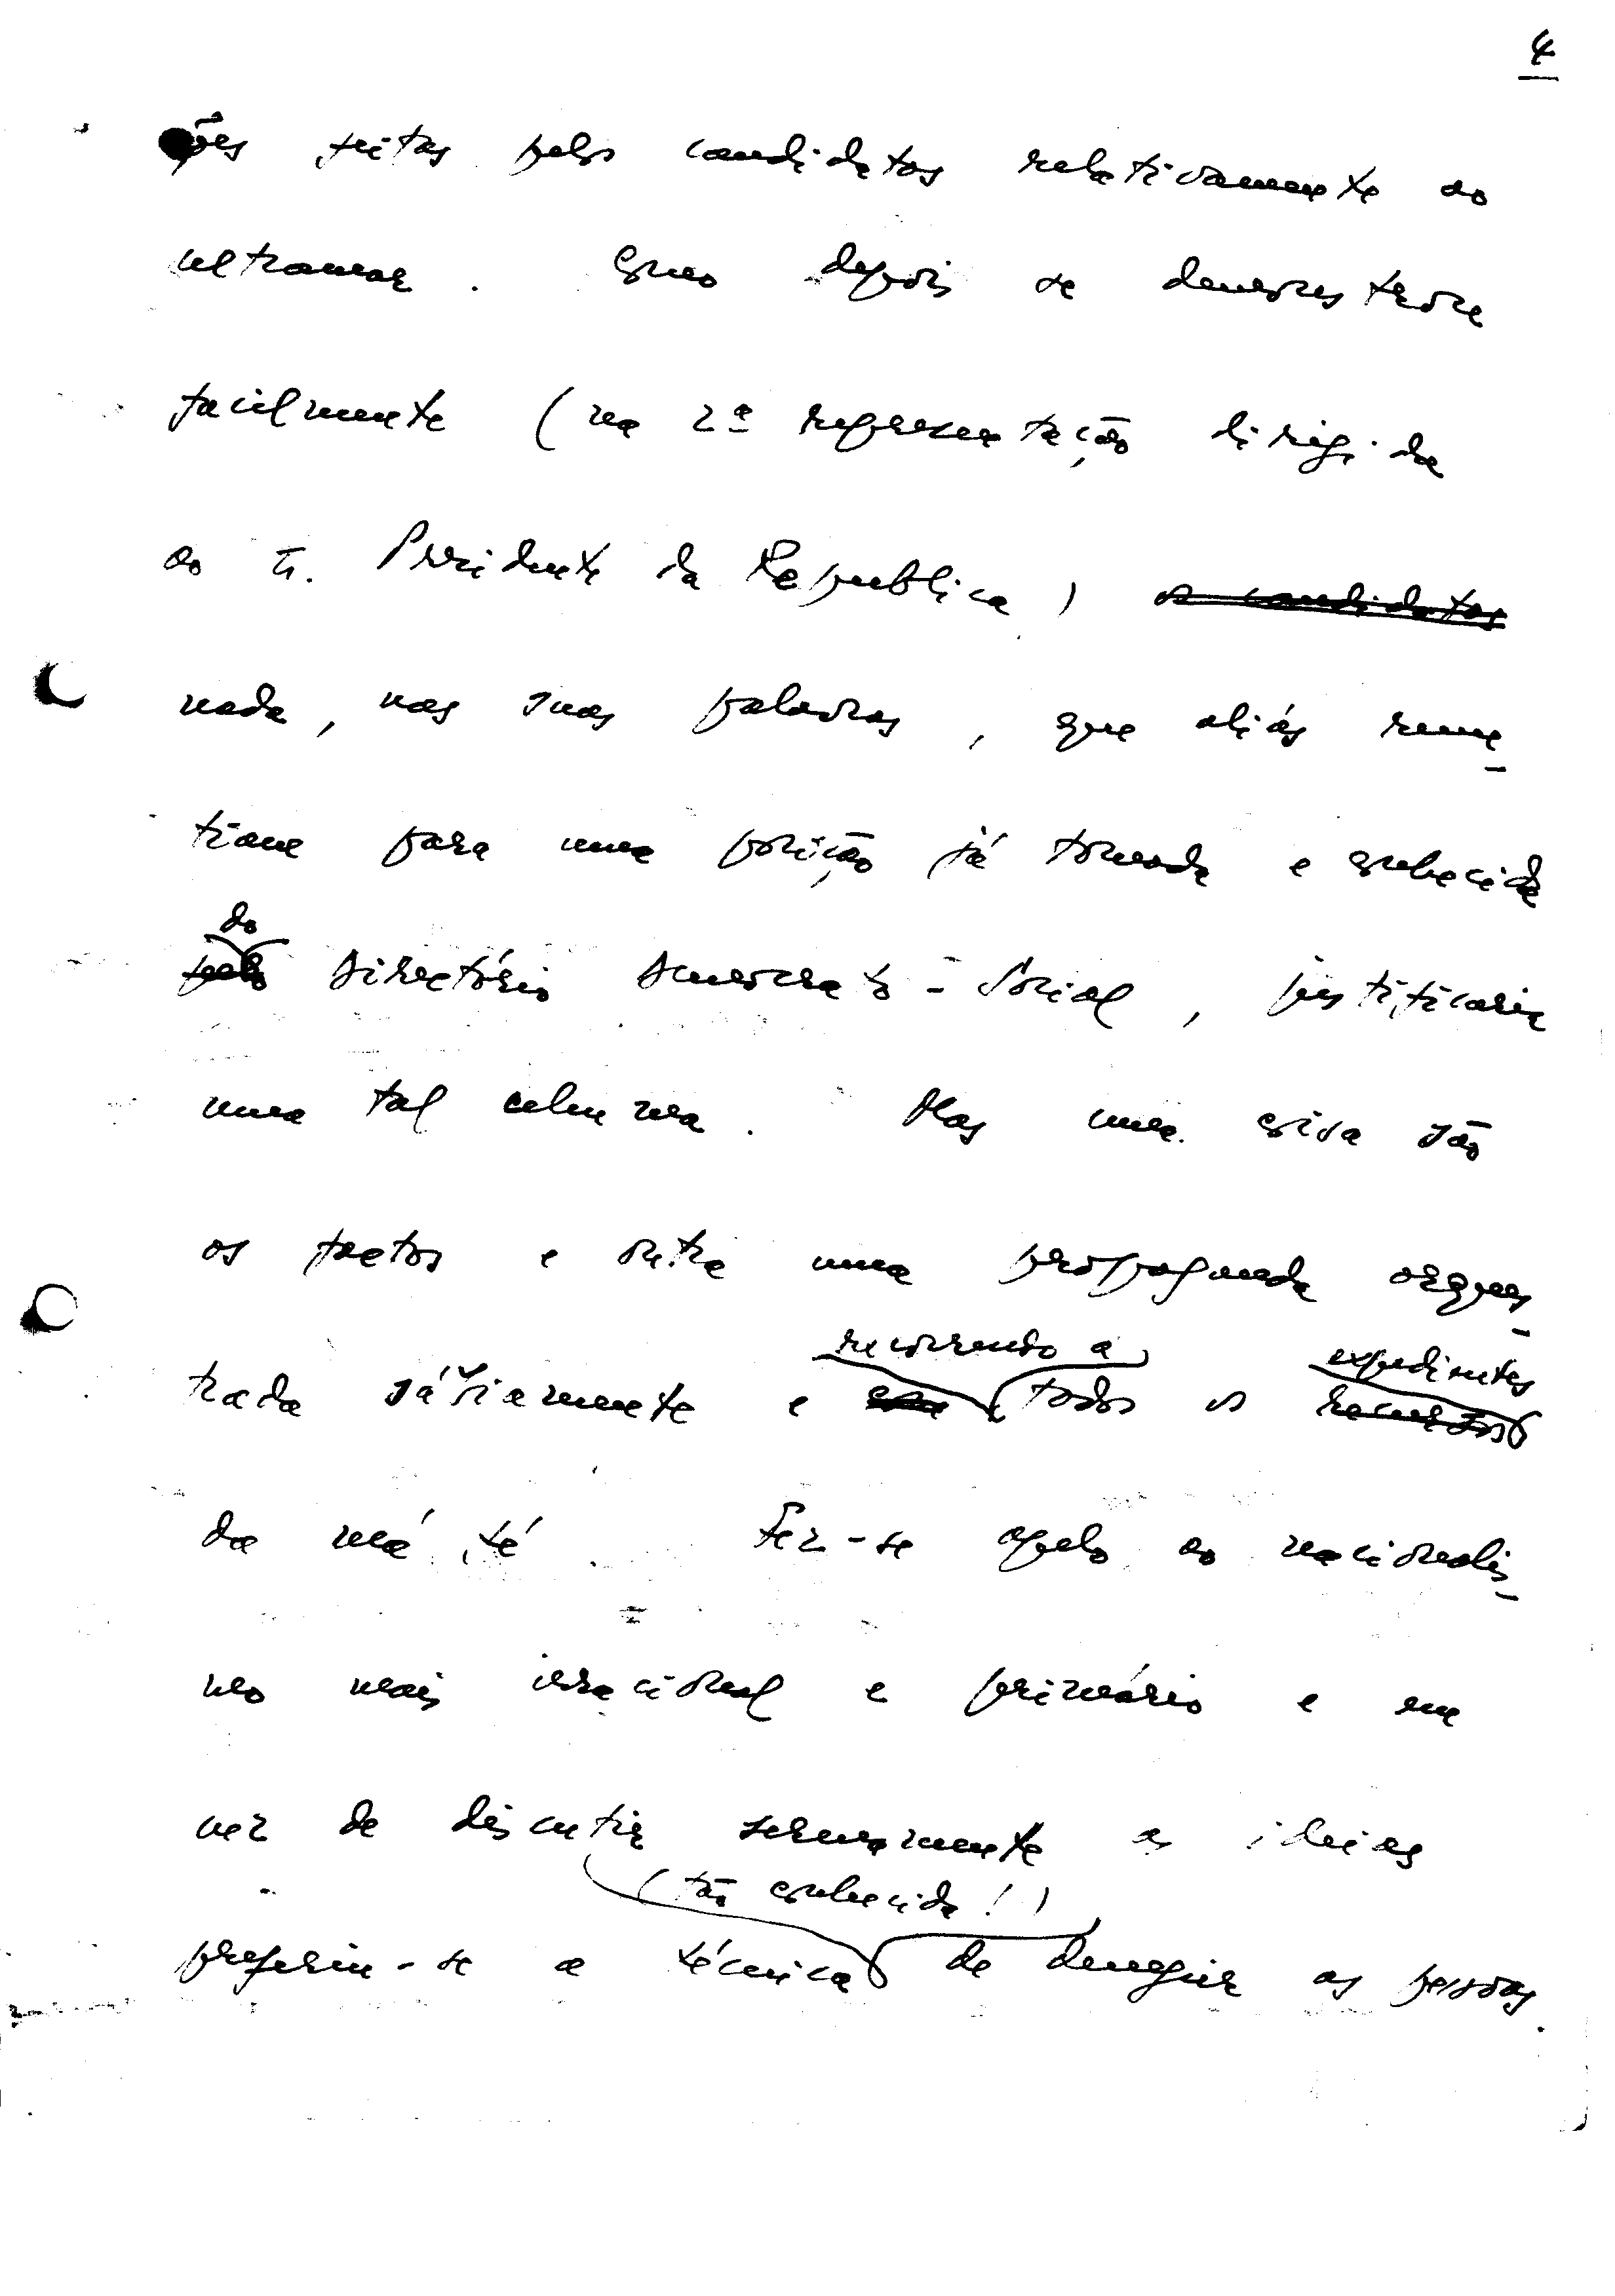 4
ções feitas pelos candidatos relativamente ao
ultramar. Como depois se demonstrou
facilmente (na 2ª representação dirigida
ao Sr. Presidente da Republica) ~~os candidatos~~
nada, nas suas palavras, que aliás reme-
tiam para uma posição já tomada e conhecida
do
~~pelo~~ Directório Democrato-Social, justificaria
uma tal celeuma. Mas uma coisa são
os factos e outra uma propaganda orques-
recorrendo a expedientes
trada sábiamente e todos os ~~recursos~~
da má fé. Fez-se apelo ao nacionalis-
mo mais irracional e primário e em
vez de discutir serenamente as ideias
(tão conhecida!)
preferiu-se a técnica de denegrir as pessoas.